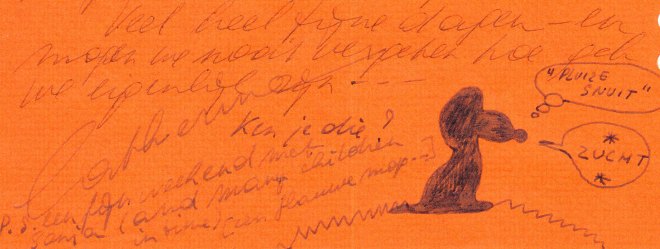 Veel heel fijne dagen - en
mogen we nooit vergeten hoe gek
we eigenlijk zijn - - -
Catherine
Ken je die?
P.S. een fijn weekend met
(and many children
in time) (een flauwe mop...)
"PLUIZE
SNUIT"
*
ZUCHT
*